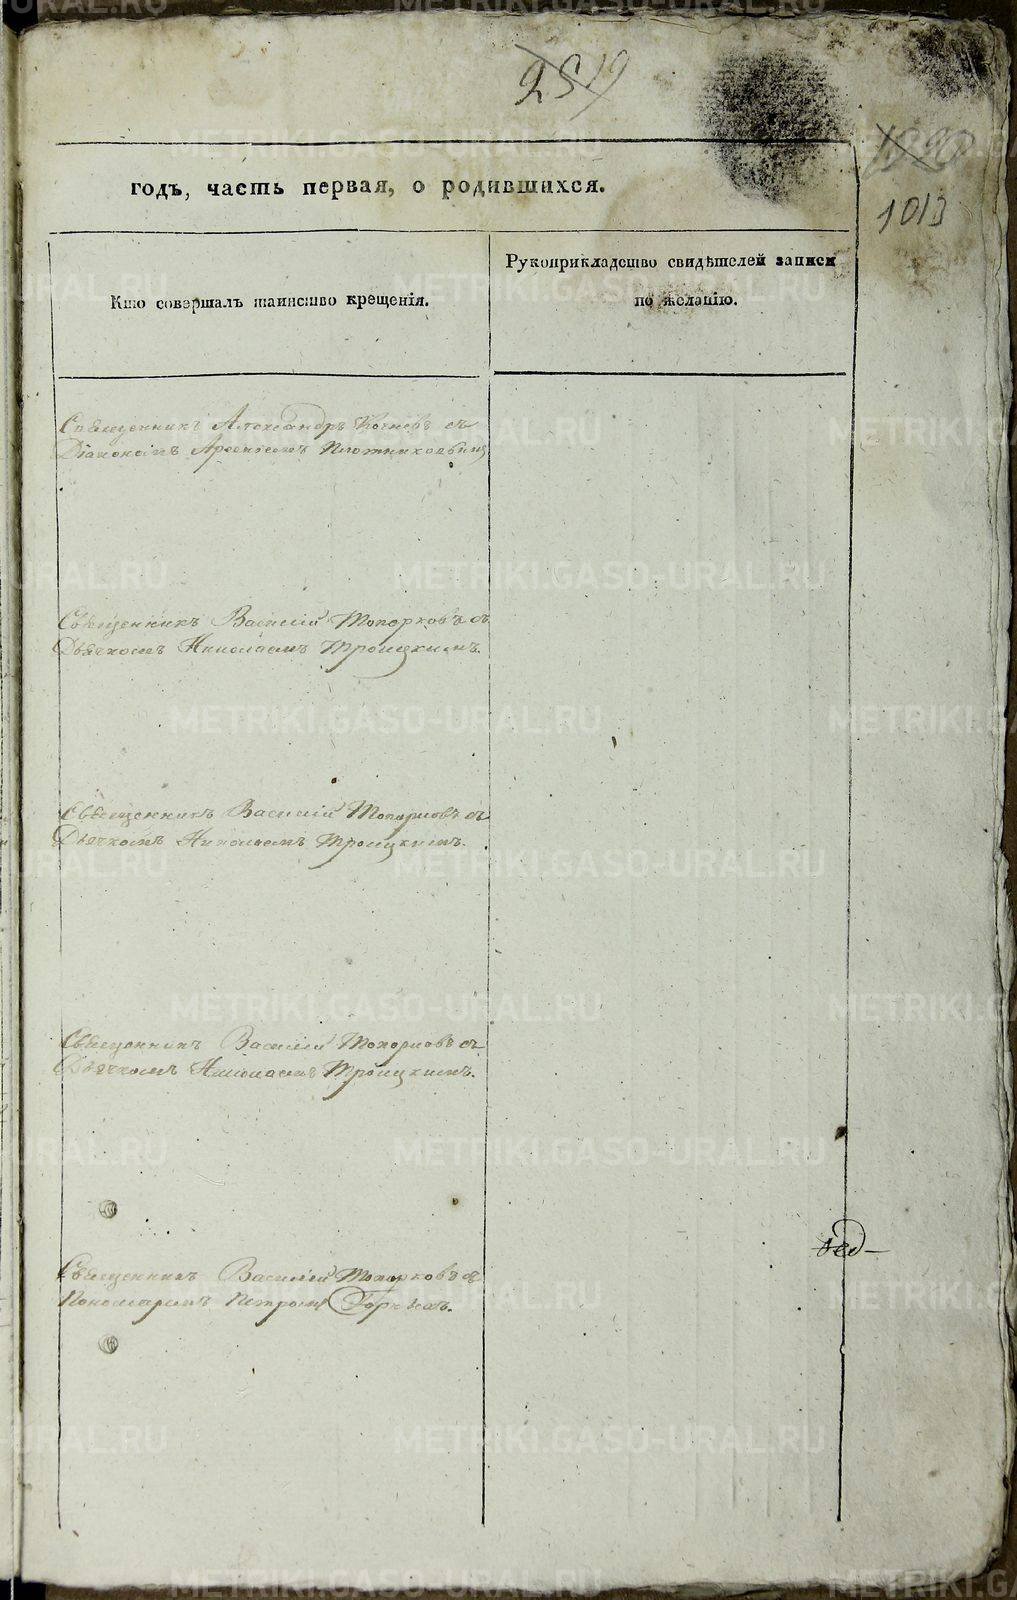 2519
1013
годъ, часть первая, о родившихся.
Кто совершалъ таинство крещенія.
Рукоприкладство свидѣтелей записи
по желанію.
Священникъ Александръ съ
Діакономъ Арсеніемъ
Священникъ Василій Топорковъ съ
Дьячкомъ Николаемъ Троицкимъ.
Священникъ Василій Топорковъ съ
Дьячкомъ Николаемъ Троицкимъ.
Священникъ Василій Топорковъ съ
Дьячкомъ Николаемъ Троицкимъ.
Священникъ Василій Топорковъ съ
Пономаремъ Петромъ
METRIKI.GASO-URAL.RU